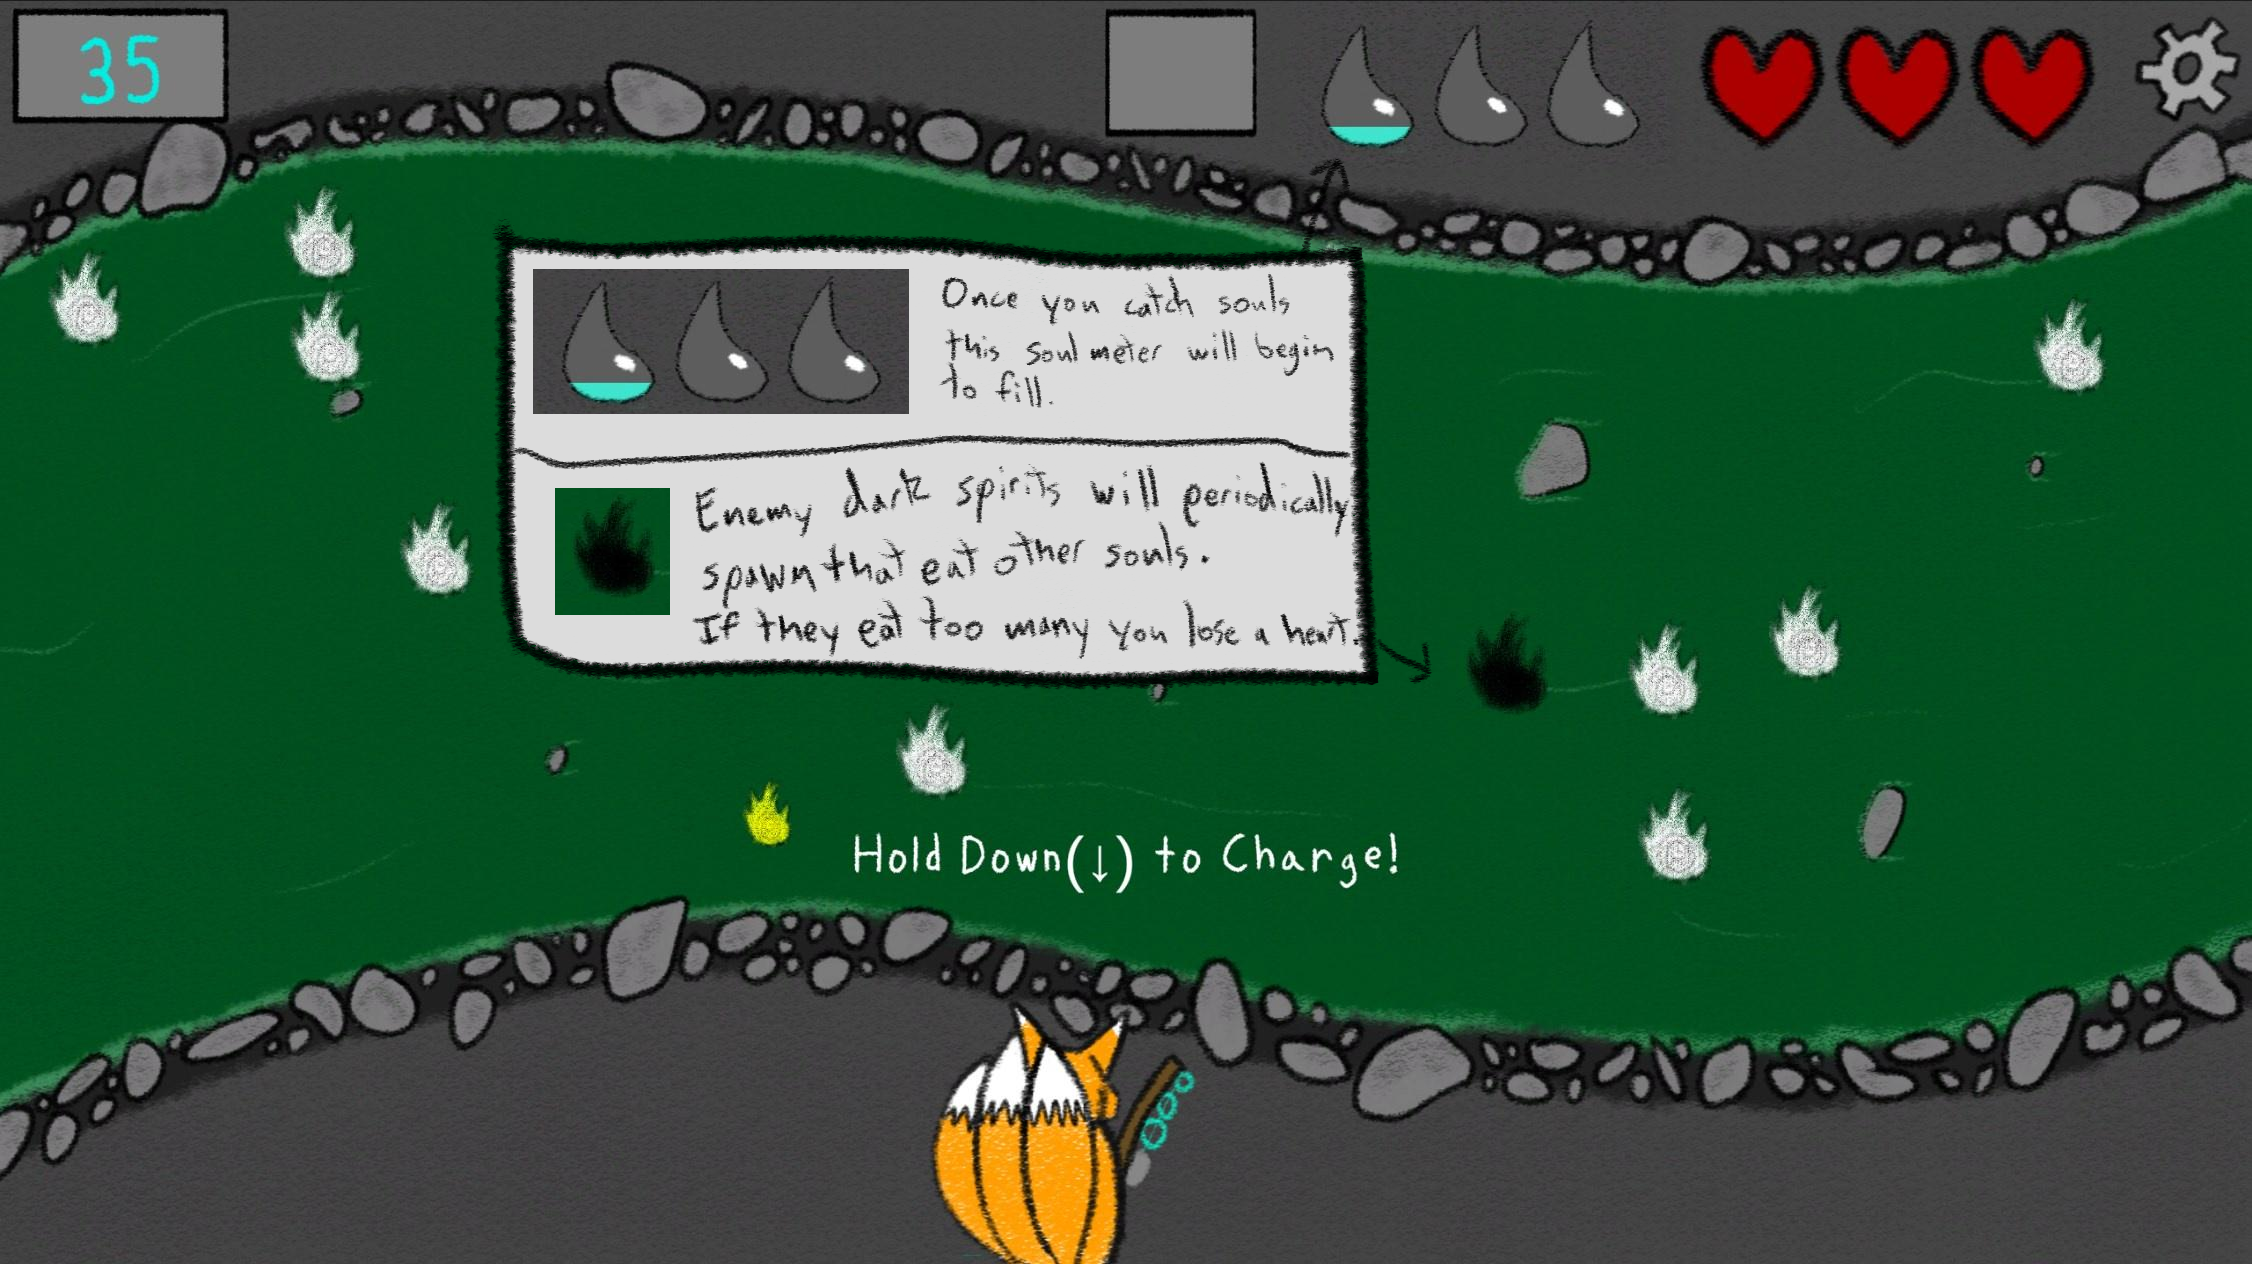 35
Once you catch souls
this soul meter will begin
to fill.
Enemy dark spirits will periodically
spawn that eat other souls.
If they eat too many you lose a heart.
Hold Down(↓) to Charge!